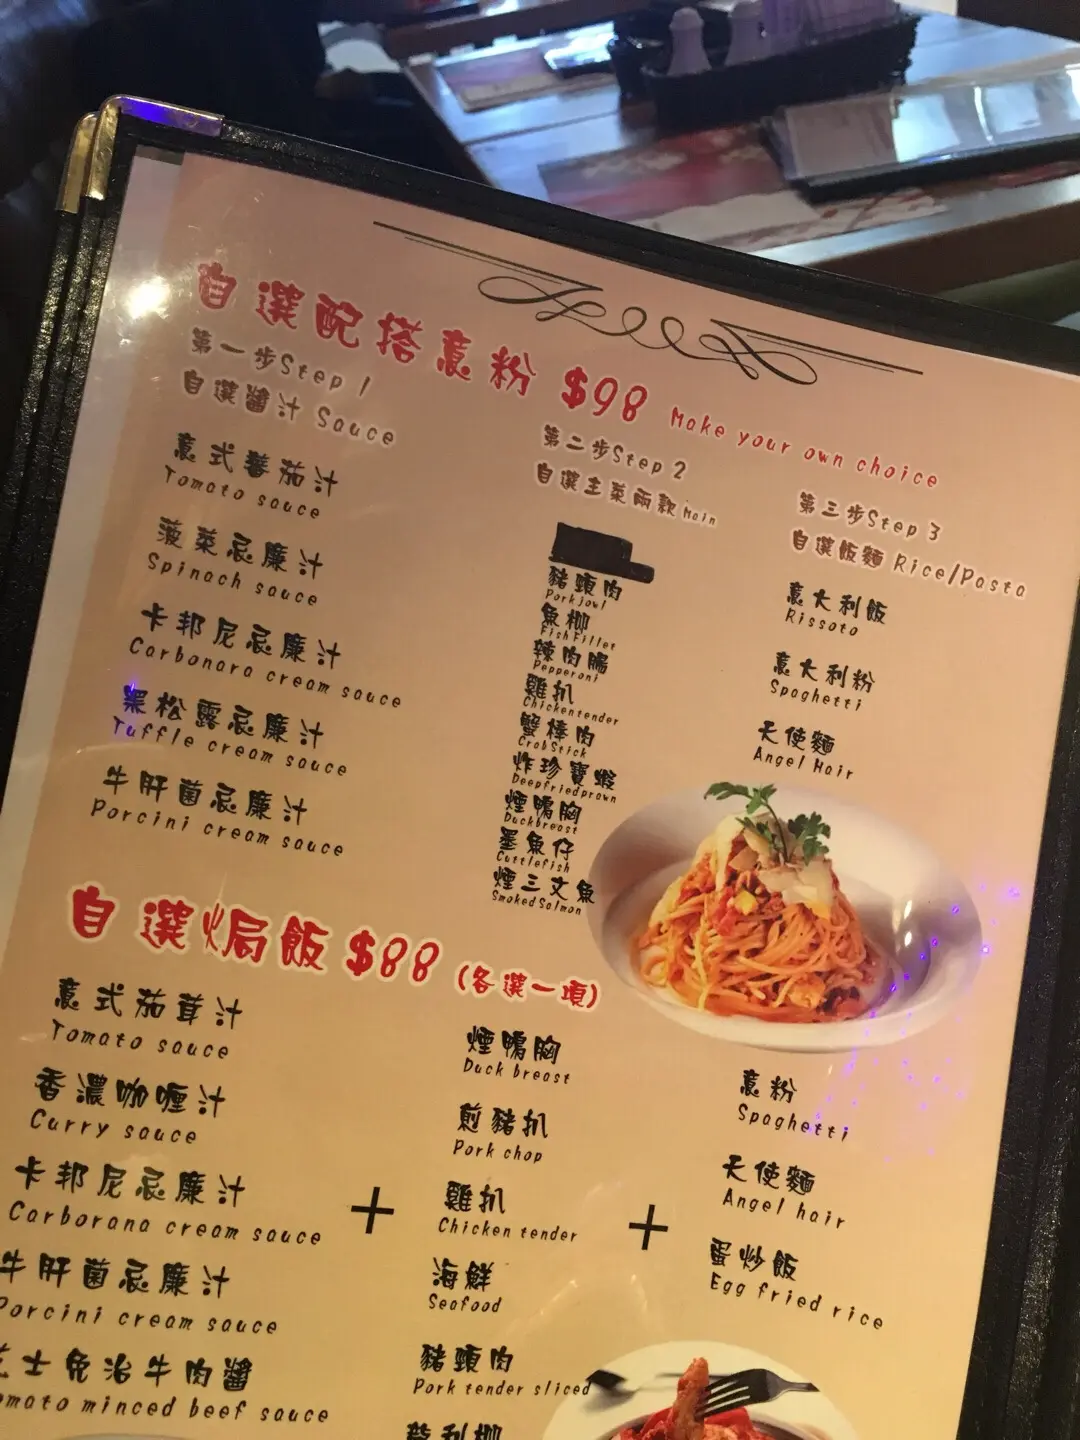 自選配搭意粉 $98 Make your own choice
第一步Step 1
自選醬汁 Sauce
意式蕃茄汁
Tomato sauce
菠菜忌廉汁
Spinach sauce
卡邦尼忌廉汁
Carbonara cream sauce
黑松露忌廉汁
Tuffle cream sauce
牛肝菌忌廉汁
Porcini cream sauce
第二步Step 2
自選主菜兩款 Main
豬頸肉
Pork jowl
魚柳
Fish Fillet
辣肉腸
Pepperoni
雞扒
Chicken tender
蟹棒肉
Crab Stick
炸珍寶蝦
Deep fried prawn
煙鴨胸
Duck breast
墨魚仔
Cuttlefish
煙三文魚
Smoked Salmon
第三步Step 3
自選飯麵 Rice/Pasta
意大利飯
Rissoto
意大利粉
Spaghetti
天使麵
Angel Hair
自選焗飯 $88 (各選一項)
意式茄茸汁
Tomato sauce
香濃咖喱汁
Curry sauce
卡邦尼忌廉汁
Carborana cream sauce
牛肝菌忌廉汁
Porcini cream sauce
芝士免治牛肉醬
omato minced beef sauce
+
煙鴨胸
Duck breast
煎豬扒
Pork chop
雞扒
Chicken tender
海鮮
Seafood
豬頸肉
Pork tender sliced
+
意粉
Spaghetti
天使麵
Angel hair
蛋炒飯
Egg fried rice